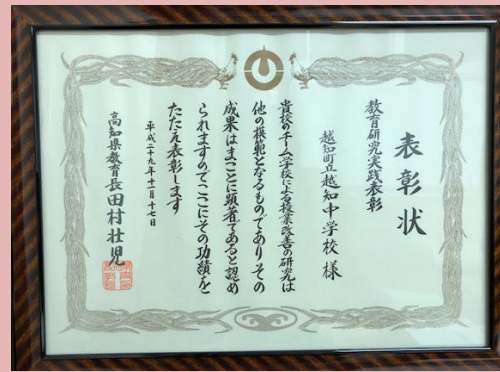 表彰状
教育研究実践表彰
越知町立越知中学校様
貴校のチーム学校による授業改善の研究は
他の模範となるものであり その
成果はまことに顕著であると認め
られますのでここにその功績を
たたえ表彰します
平成二十九年十一月十七日
高知県教育長田村壮児